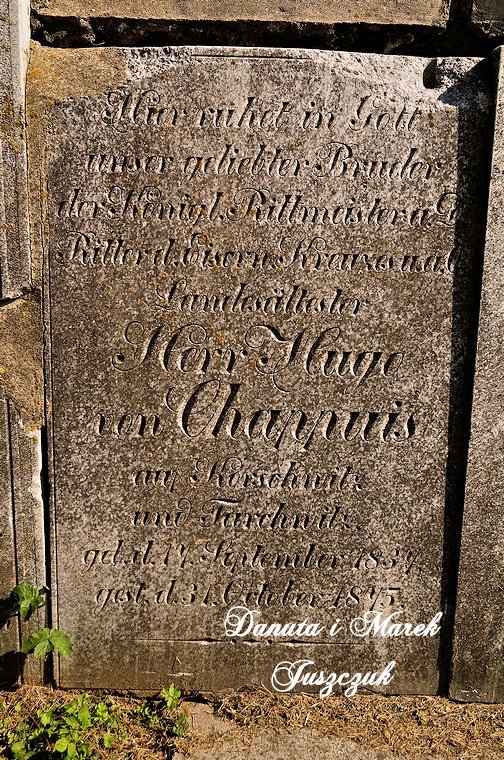 Hier ruhet in Gott
unser geliebter Bruder
der Königl. Rittmeister a. D.
Ritter d. eisern. Kreuzes u. a. O.
Landesältester
Herr Hugo
von Chappuis
auf Körschwitz
und Tarchwitz,
geb. d. 17. September 1834,
gest. d. 31. October 1875.
Danuta i Marek
Juszczuk